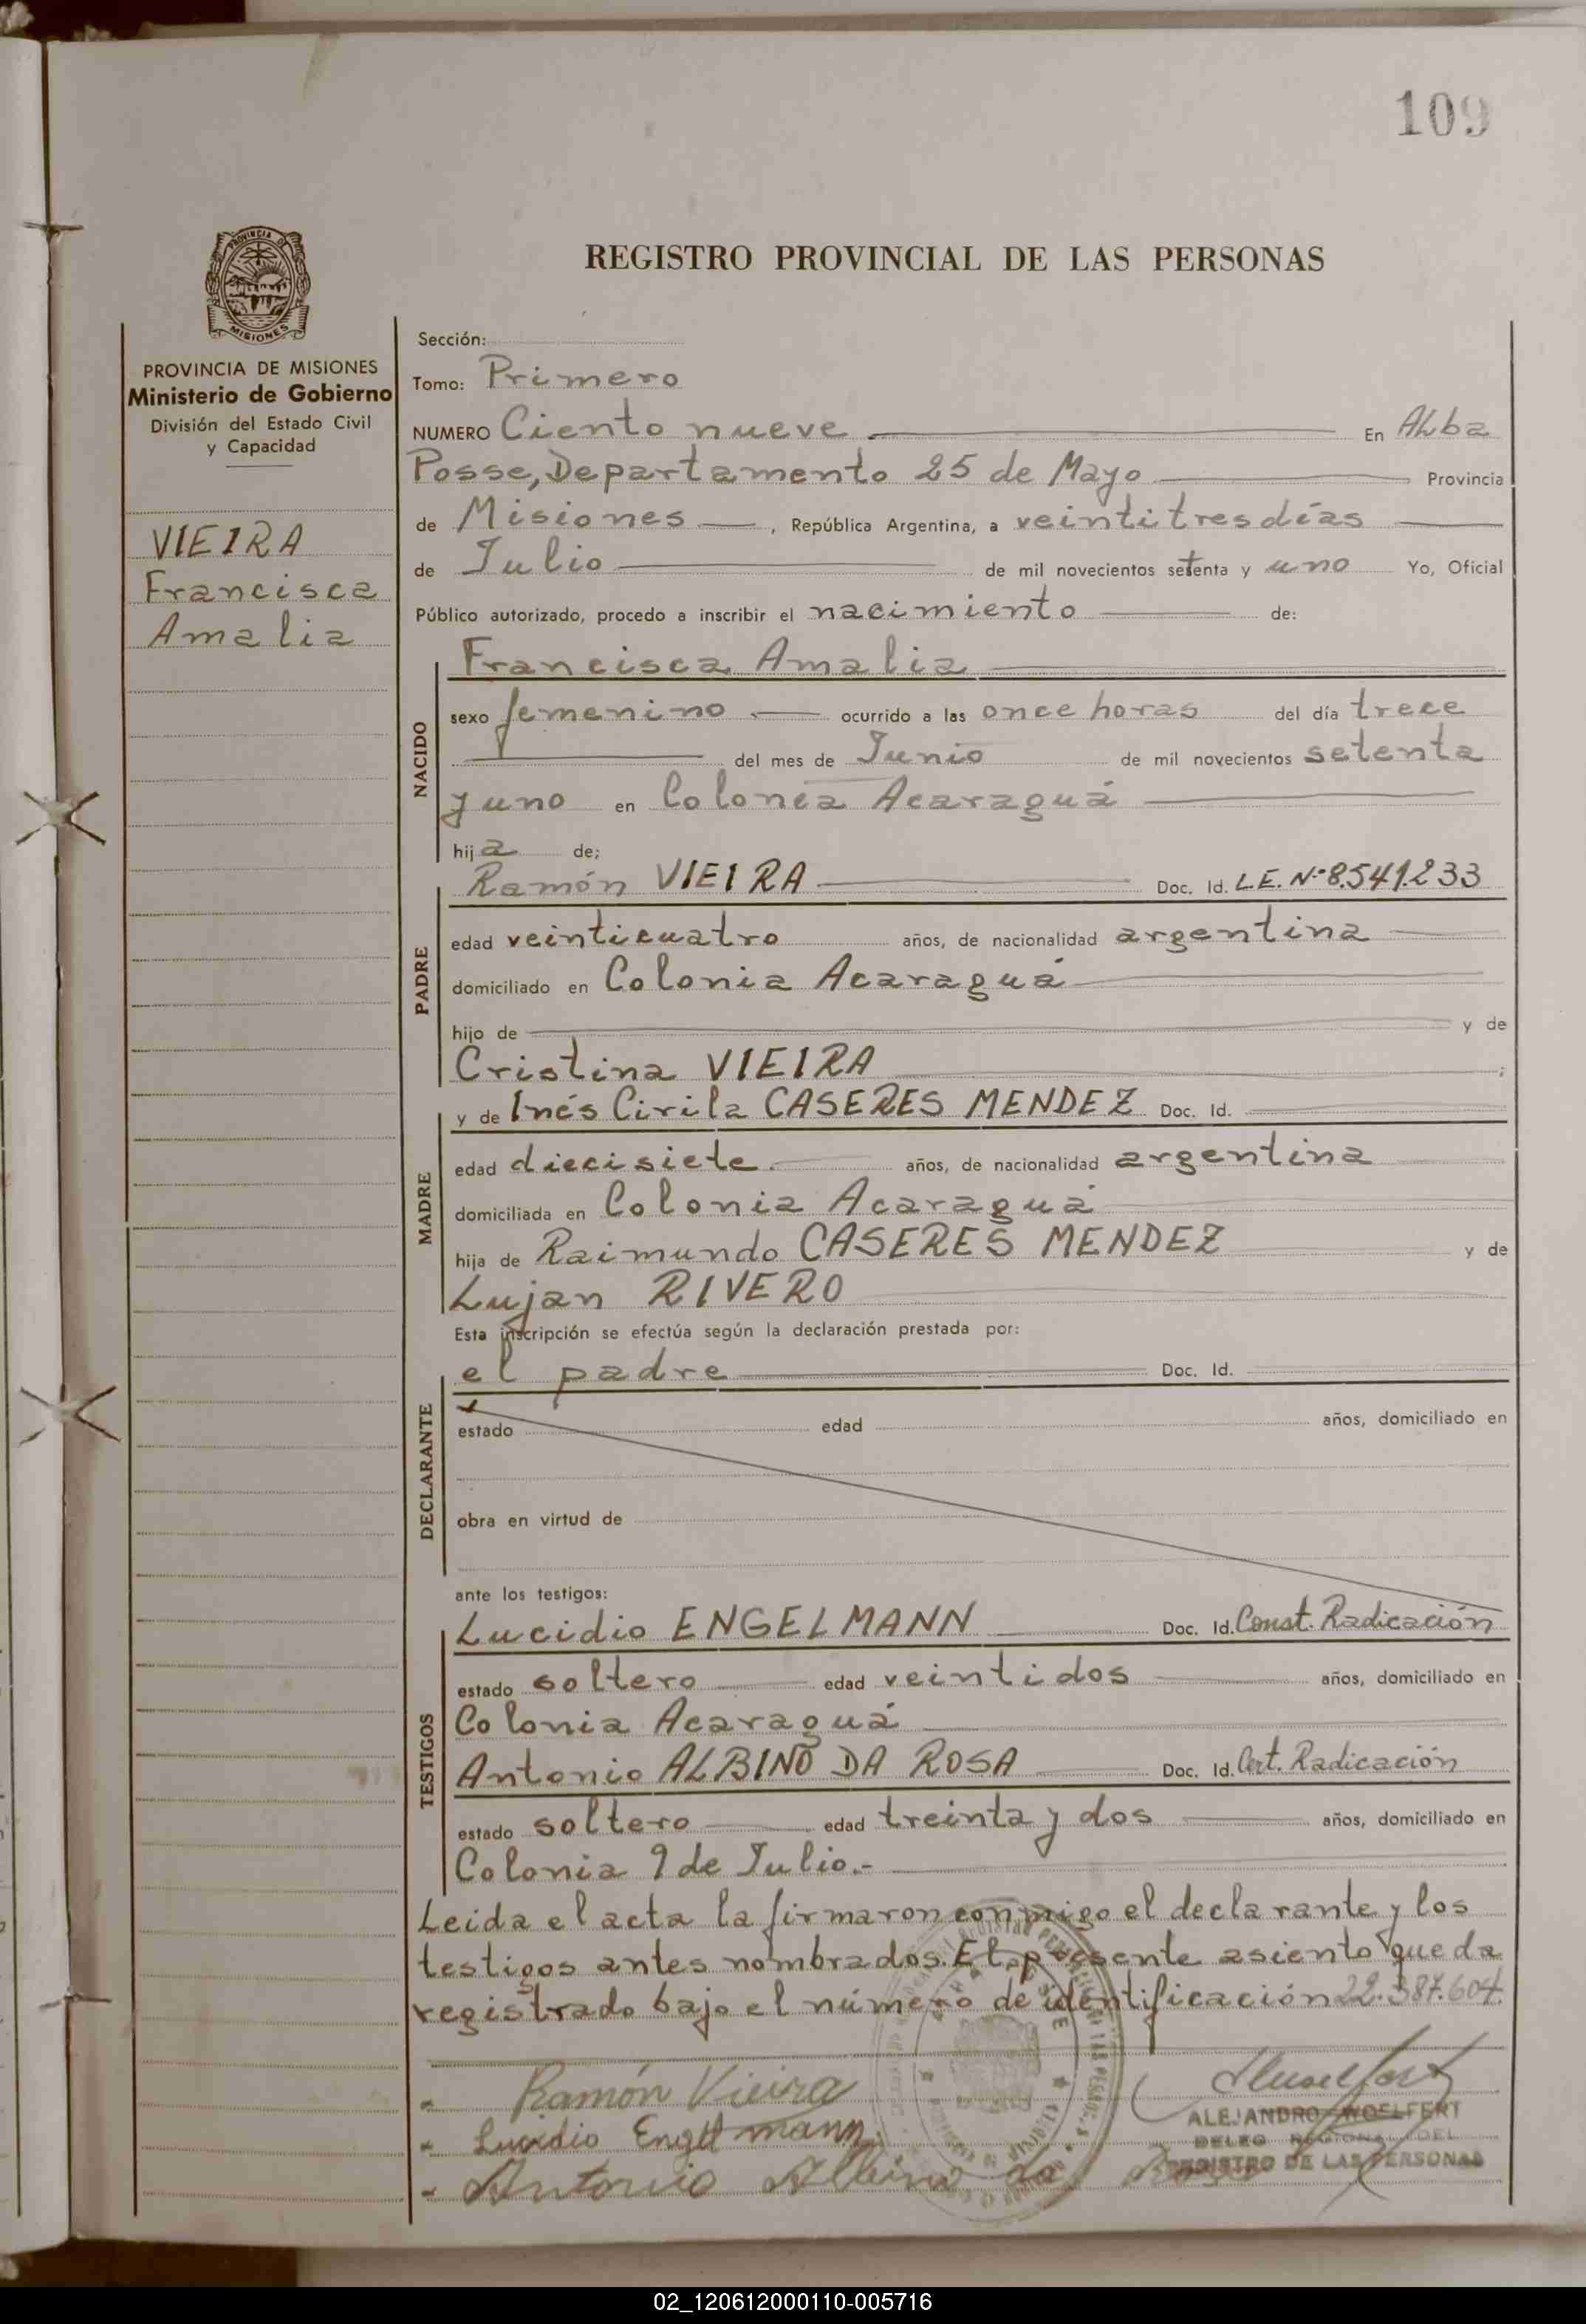 109
PROVINCIA DE
MISIONES
REGISTRO PROVINCIAL DE LAS PERSONAS
PROVINCIA DE MISIONES
Ministerio de Gobierno
División del Estado Civil
y Capacidad
VIEIRA
Francisca
Amalia
Sección:
Tomo: Primero
NUMERO Ciento nueve En ALba
Posse, Departamento 25 de Mayo Provincia
de Misiones, República Argentina, a veintitres días
de Julio de mil novecientos setenta y uno Yo, Oficial
Público autorizado, procedo a inscribir el nacimiento de:
NACIDO
Francisca Amalia
sexo femenino ocurrido a las once horas del día trece
del mes de Junio de mil novecientos setenta
y uno en Colonia Acaraguá
hija de;
PADRE
Ramón VIEIRA Doc. Id. L.E. Nº 8.541.233
edad veinticuatro años, de nacionalidad argentina
domiciliado en Colonia Acaraguá
hijo de y de
Cristina VIEIRA ;
MADRE
y de Inés Cirila CASERES MENDEZ Doc. Id.
edad diecisiete años, de nacionalidad argentina
domiciliada en Colonia Acaraguá
hija de Raimundo CASERES MENDEZ y de
Lujan RIVERO
Esta inscripción se efectúa según la declaración prestada por:
DECLARANTE
el padre Doc. Id.
estado edad años, domiciliado en
obra en virtud de
ante los testigos:
TESTIGOS
Lucidio ENGELMANN Doc. Id. Const. Radicación
estado soltero edad veintidos años, domiciliado en
Colonia Acaraguá
Antonio ALBINO DA ROSA Doc. Id. Cert. Radicación
estado soltero edad treinta y dos años, domiciliado en
Colonia 9 de Julio.-
Leida el acta la firmaron conmigo el declarante y los
testigos antes nombrados. El presente asiento queda
registrado bajo el número de identificación 22.387.604.
Ramón Vieira
Lucidio Engelmann
Antonio Albino da Rosa
ALEJANDRO WOELFERT
DELEG REGIONAL DEL
REGISTRO DE LAS PERSONAS
02_120612000110-005716